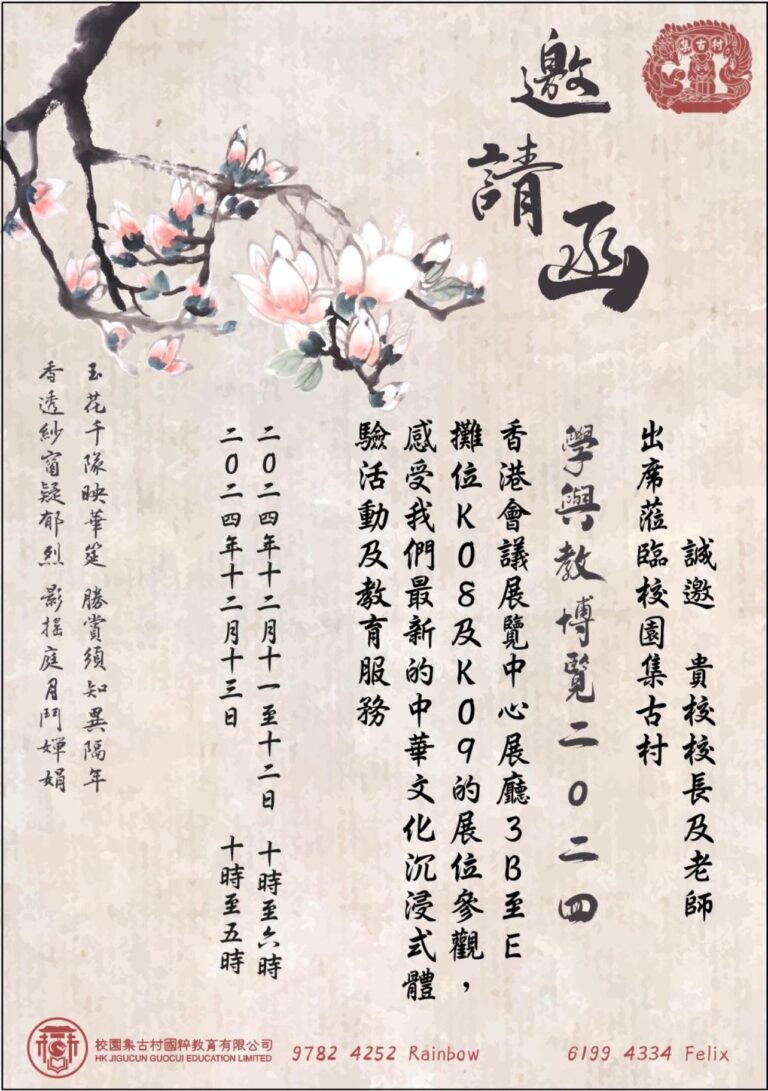 集古村
邀請函
誠邀 貴校校長及老師
出席蒞臨校園集古村
學與教博覽二０二四
香港會議展覽中心展廳3B至E
攤位K08及K09的展位參觀，
感受我們最新的中華文化沉浸式體
驗活動及教育服務
二０二四年十二月十一至十二日 十時至六時
二０二四年十二月十三日 十時至五時
玉花千隊映華筵 勝賞須知異隔年
香透紗窗疑郁烈 影搖庭月鬥嬋娟
校園集古村國粹教育有限公司
HK JIGUCUN GUOCUI EDUCATION LIMITED
9782 4252 Rainbow
6199 4334 Felix